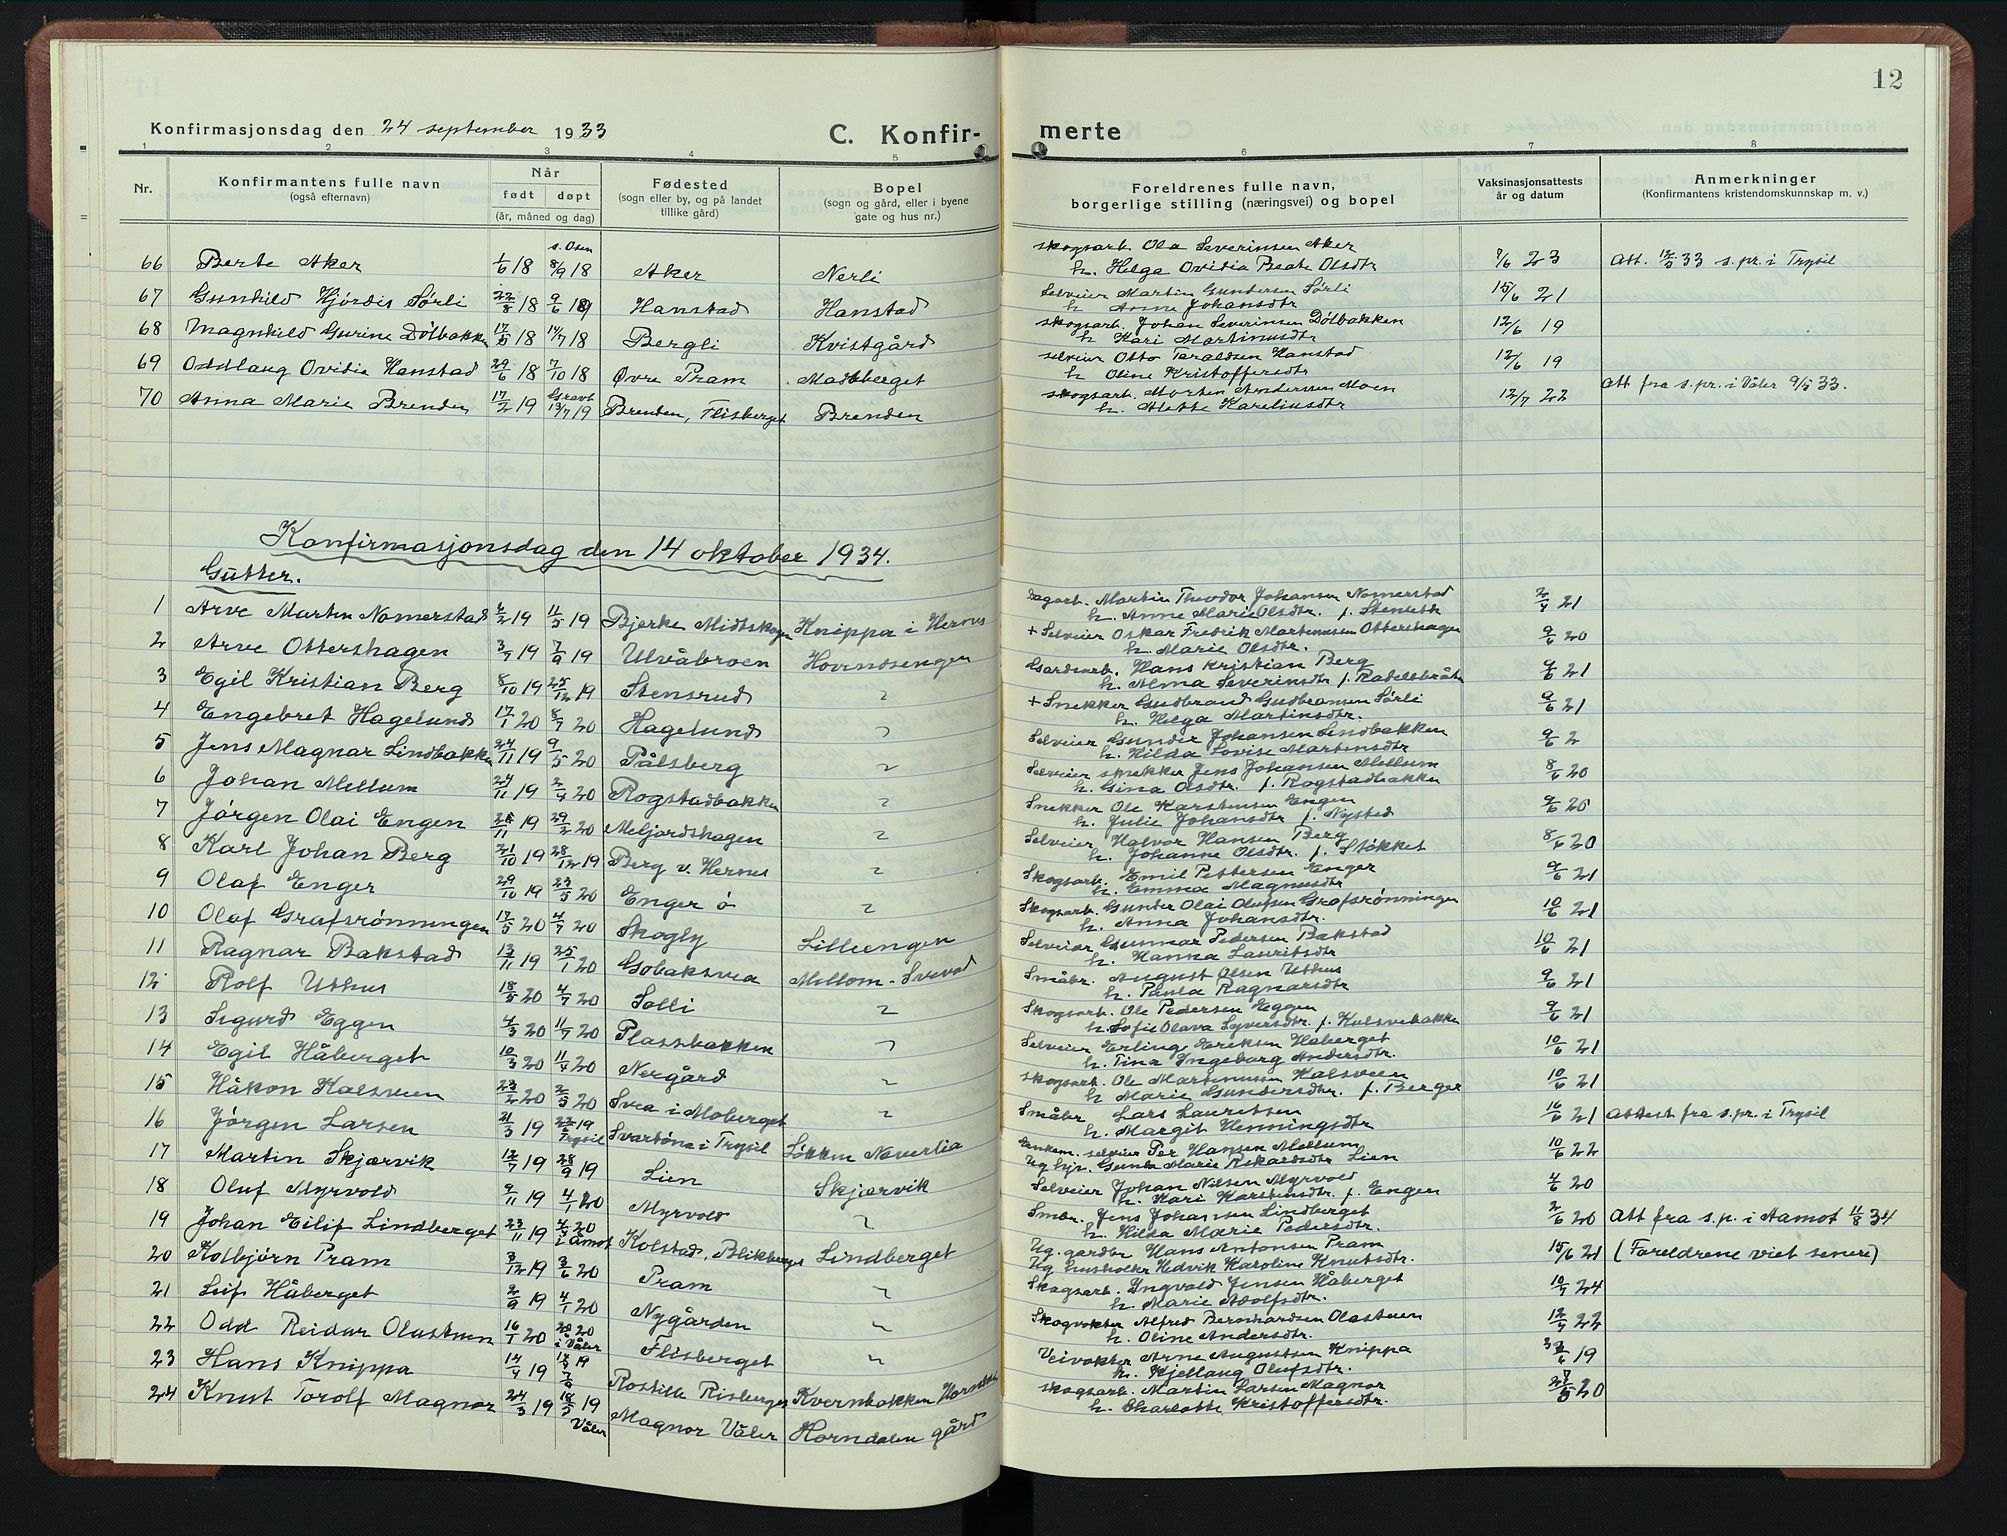 12
Konfirmasjonsdag den 24 september 1933
C. Konfir- merte
1 2 3 4 5 6 7 8
Nr. Konfirmantens fulle navn (også efternavn) Når født døpt (år, måned og dag) Fødested (sogn eller by, og på landet tillike gård) Bopel (sogn og gård, eller i byene gate og hus nr.) Foreldrenes fulle navn, borgerlige stilling (næringsvei) og bopel Vaksinasjonsattests år og datum Anmerkninger (Konfirmantens kristendomskunnskap m. v.)
66 Berte Aker 1/6 18 s. Osen 8/9 18 Aker Nerli skogsarb. Ola Severinsen Aker h. Helga Ovidia Beate Olsdtr 7/6 23 Att. 12/9 33 s.pr. i Trysil
67 Gunhild Hjørdis Sørli 22/8 18 9/6 19 Hanstad Hanstad Selveier Martin Gundersen Sørli h. Anne Johansdtr 15/6 21
68 Magnhild Gurine Dølbakken 17/5 18 14/7 18 Bergli Kvistgård skogsarb. Johan Severinsen Dølbakken h Kari Martinusdtr 12/6 19
69 Oddlaug Ovidie Hanstad 29/6 18 7/10 18 Øvre Pram Madsberget selveier Otto Taraldsen Hanstad h Oline Kristoffersdtr 12/6 19
70 Anna Marie Brenden 17/2 19 Gravb. 13/7 19 Brenden, Flisberget Brenden skogsarb. Morten Anderssen Moen h. Alette Kareliusdtr 12/7 22 Att fra s.pr. i Våler 9/5 33.
Konfirmasjonsdag den 14 oktober 1934.
Gutter.
1 Arve Martin Nomerstad 4/2 19 11/5 19 Bjerke Midtskogen Knippa i Hernes Dagarb. Martin Theodor Johansen Nomerstad h. Anne Marie Olsdtr. f. Stenseth 2/4 21
2 Arve Ottershagen 3/7 19 7/9 19 Ulvåbroen Hovindsengen + Selveier Oskar Fredrik Martinussen Ottershagen h. Marie Olsdtr. 9/6 20
3 Egil Kristian Berg 8/10 19 25/12 19 Stensrud " Gardsarb. Hans Kristian Berg h. Alma Severinsdtr f. Radellsbråten 9/6 21
4 Engebret Hagelund 17/1 20 8/7 20 Hagelund " + Snekker Gudbrand Gudbransen Sørli h. Helga Martinsdtr. 9/6 21
5 Jens Magnar Lindbakken 24/11 19 9/5 20 Pålsberg " Selveier Gunder Johansen Lindbakken h. Hilda Lovise Martinsdtr 9/6 2
6 Johan Mellum 24/11 19 2/4 20 Rogstadbakken " Selveier snekker Jens Johansen Mellum h. Gina Olsdtr. f. Rogstadbakken 8/6 20
7 Jørgen Olai Engen /11 19 29/2 20 Meljordshagen " Snekker Ole Karstensen Engen h. Julie Johansdtr f. Nysted 9/6 20
8 Karl Johan Berg 21/10 19 28/12 19 Berg v. Hernes " Selveier Halvor Hansen Berg h. Johanne Olsdtr. f. Støkket 8/6 20
9 Olaf Enger 29/10 19 23/5 20 Enger ø " Skogsarb. Emil Pettersen Enger h. Emma Magnusdtr 9/6 21
10 Olaf Grafsrønningen 17/5 20 4/7 20 Skogly " Skogsarb. Gunder Olai Olufsen Grafsrønningen h. Anna Johansdtr. 10/6 21
11 Ragnar Bakstad 13/11 19 25/1 20 Gobaksvea Lilleengen Selveier Gunnar Pedersen Bakstad h. Hanna Lauritsdtr 10/6 21
12 Rolf Uthus 18/5 20 4/7 20 Solli Mellom-Svevad Småbr. August Olsen Uthus h. Paula Ragnarsdtr 9/6 21
13 Sigurd Eggen 4/3 20 11/7 20 Plassbakken " Skogsarb. Ole Pedersen Eggen h. Sofie Olava Syversdtr. f. Kulsvebakken 9/6 21
14 Egil Håberget 10/3 20 11/4 20 Nergård " Selveier Erling Eriksen Håberget h. Tina Ingeborg Andersdtr. 10/6 21
15 Håkon Kalsveen 23/2 20 2/5 20 Svea i Moberget " skogsarb. Ole Martinussen Kalsveen h Marie Gundersdtr. f. Berger 10/6 21
16 Jørgen Larsen 21/3 19 19 Trysil Svartåna i Trysil " Småbr Lars Lauritsen h. Margit Henningsdtr 16/6 21 Attest fra s.pr. i Trysil
17 Martin Skjærvik 12/7 19 28/9 19 Lien Løkken Neverlia Enkem. selveier Per Hansen Mellum Ug hjv. Gunda Marie Rikardsdtr Lien 10/6 22
18 Oluf Myrvold 9/11 19 4/1 20 Myrvold Skjærvik Selveier Johan Nilsen Myrvold h. Kari Karstensdtr. f. Engen 4/6 20
19 Johan Eilif Lindberget 23/11 19 4/3 20 i Åmot Kolstad, Blikberget " Småbr. Jens Johansen Lindberget h. Hilda Marie Pedersdtr. 2/6 20 Att fra s.p. i Aamot 11/8 34
20 Kolbjørn Pram 3/12 19 3/6 20 Pram Lindberget Ug. gardbr Hans Antonsen Pram Ug husholder Hedvik Karoline Knutsdtr. 15/6 21 (Foreldrene viet senere)
21 Leif Håberget 2/9 19 4/1 20 Nygården " Skogsarb. Ingvald Jensen Håberget h. Marie Adolfsdtr. 10/7 24
22 Odd Reidar Olastuen 16/1 20 20 i Våler Flisberget " Skogvokter Alfred Bernhardsen Olastuen h. Oline Andersdtr. 12/7 22
23 Hans Knippa 14/4 19 19 Rostille Risberget Kvernbakken Horndalen Veivokter Arne Augustsen Knippa h. Kjellaug Olufsdtr. 19
24 Knut Torolf Magnor 24/3 19 18/5 19 Våler Magnor Våler Horndalen gård skogsarb. Martin Larsen Magnor h. Charlotte Kristoffersdtr. 20